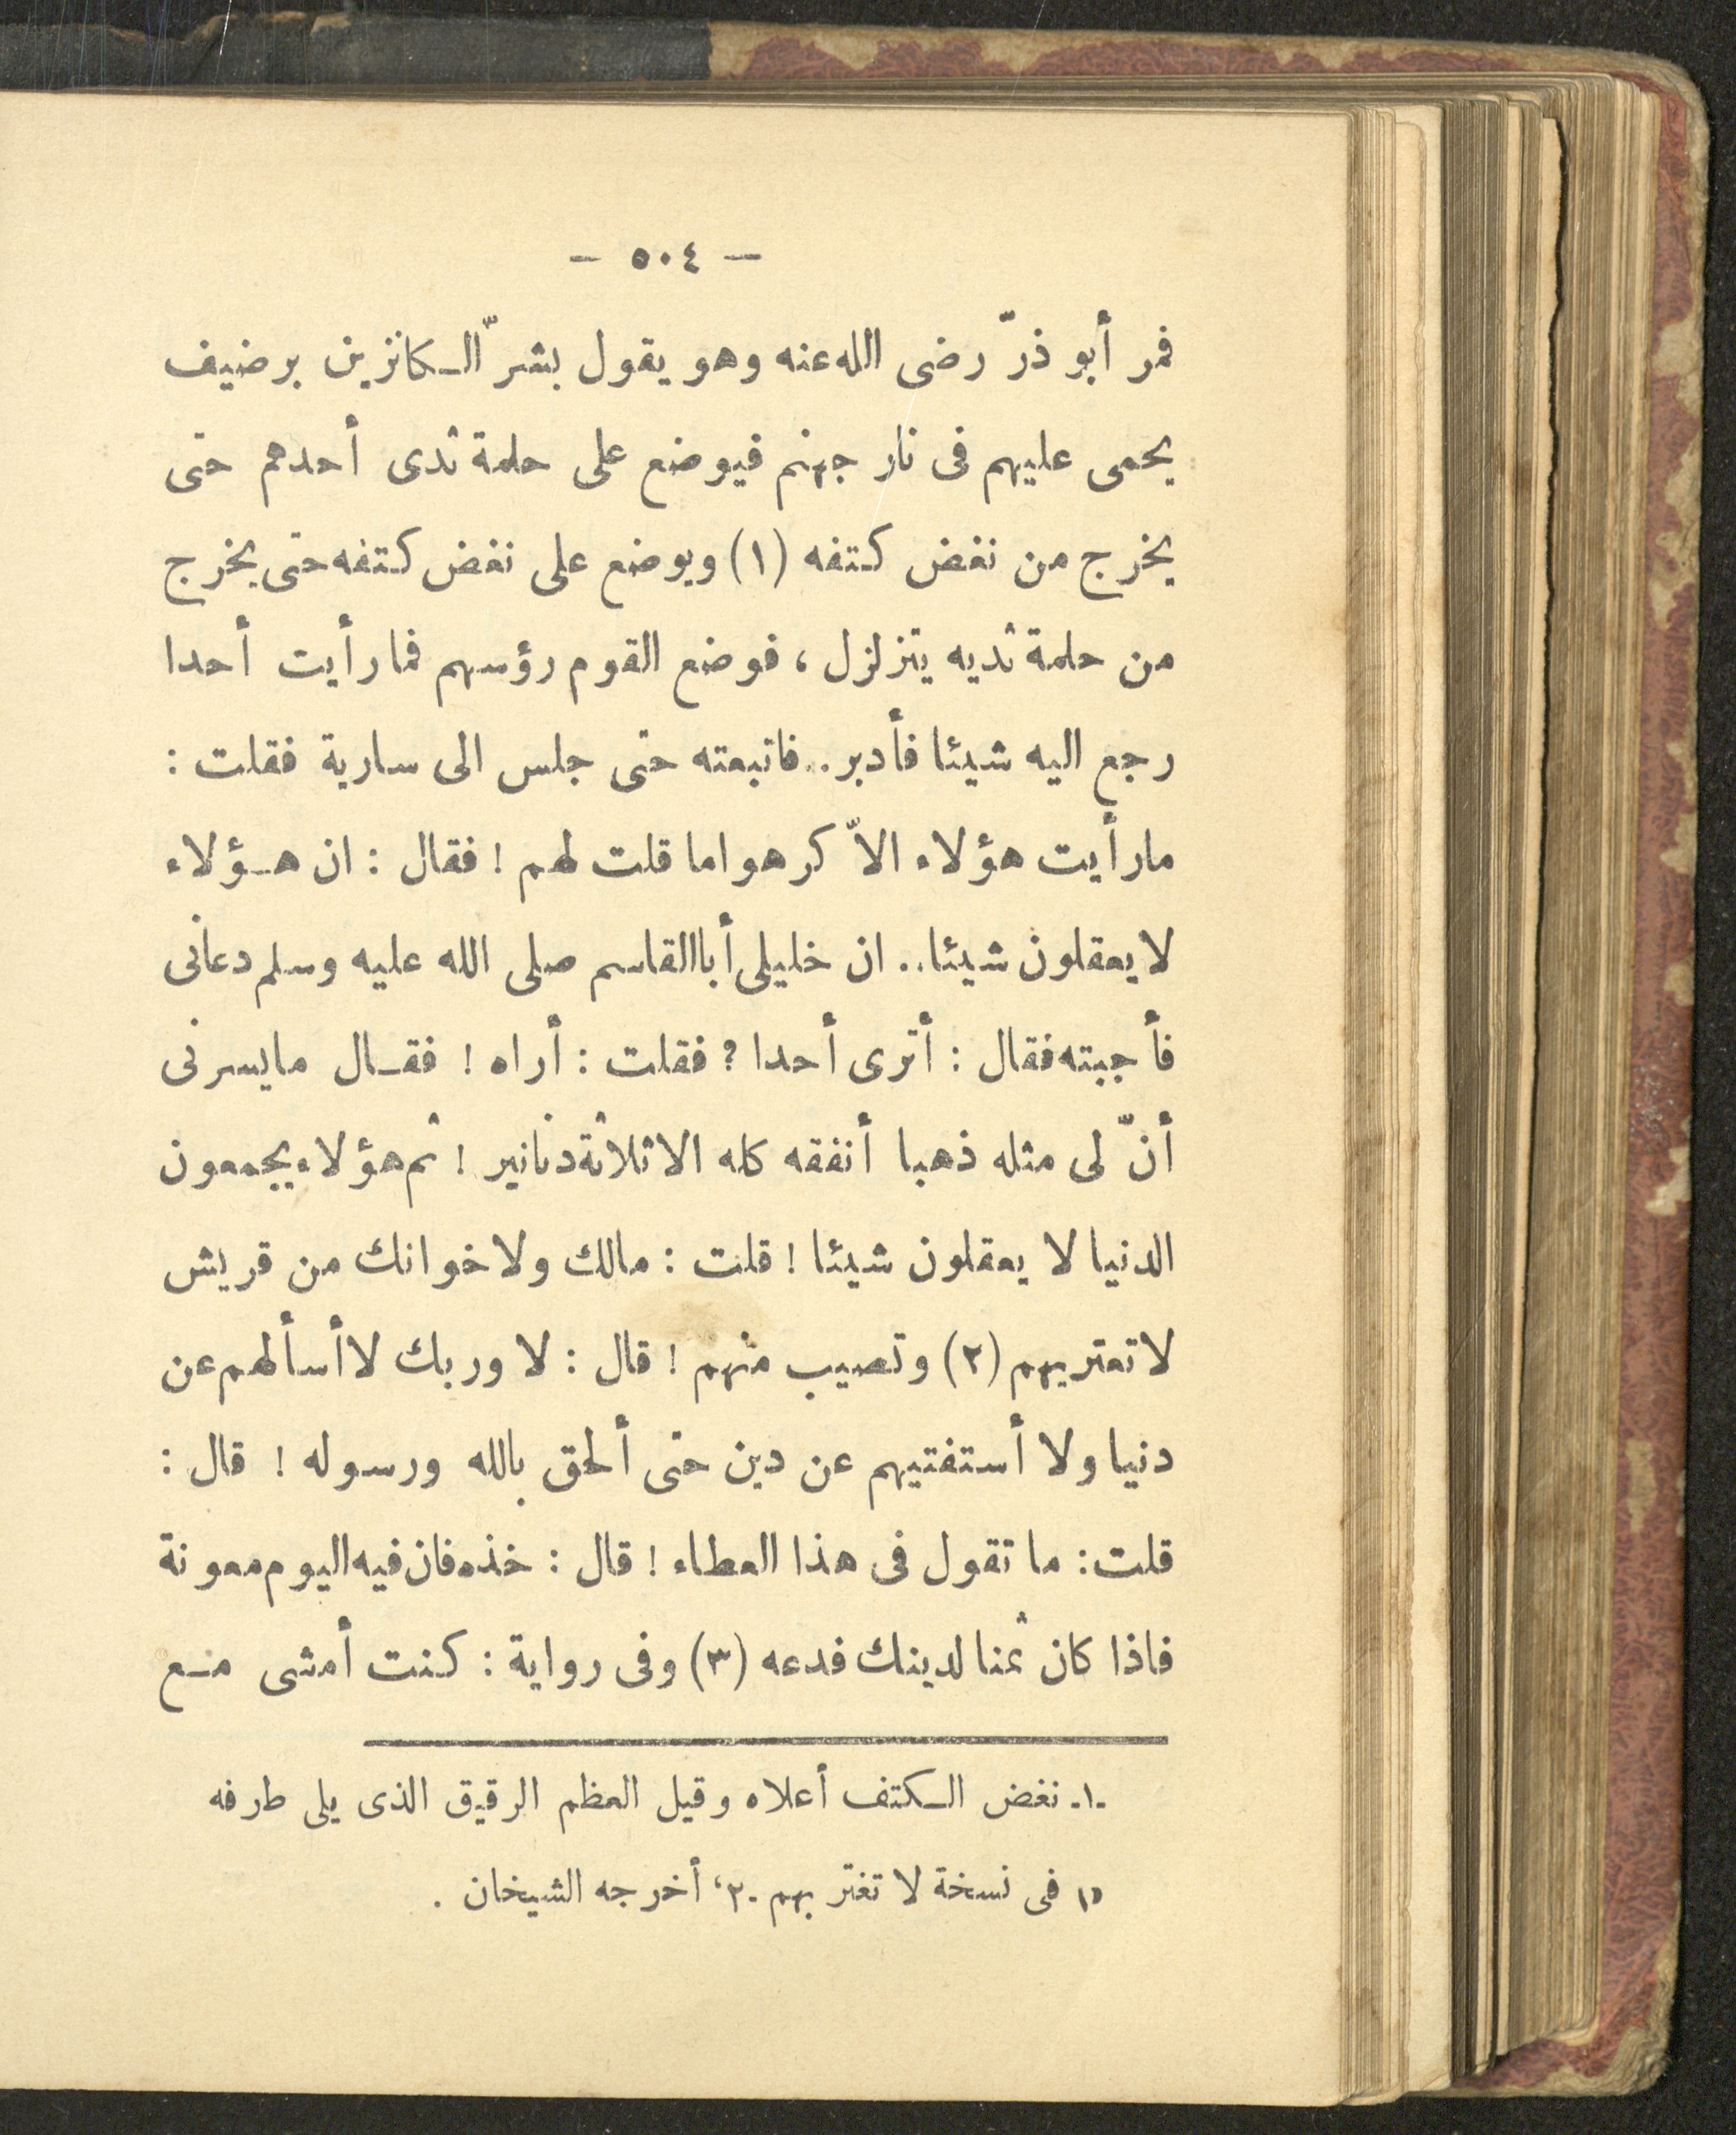 — ٥٠٤ —
فمر أبو ذرّ رضى الله عنه وهو يقول بشرّ الـكانزين برضيف
يحمى عليهم فى نار جهنم فيوضع على حلمة ثدى أحدهم حتى
يخرج من نغض كتفه (١) ويوضع على نغض كتفه حتى يخرج
من حلمة ثديه يتزلزل ، فوضع القوم رؤسهم فمارأيت أحدا
رجع اليه شيئا فأدبر .. فاتبعته حتى جلس الى سارية فقلت :
مارأيت هؤلاء الاّ كرهوا ما قلت لهم ! فقال : ان هـؤلاء
لا يعقلون شيئا .. ان خليلى أباالقاسم صلى الله عليه وسلم دعانى
فأجبته فقال : أترى أحدا ؟ فقلت : أراه ! فقـال مايسرنى
أنّ لى مثله ذهبا أنفقه كله الا ثلاثة دنانير ! ثم هؤلاء يجمعون
الدنيا لا يعقلون شيئا ! قلت : مالك ولاخوانك من قريش
لا تعتريهم (٢) وتصيب منهم ! قال : لا وربك لاأسألهم عن
دنيا ولا أستفتيهم عن دين حتى ألحق بالله ورسوله ! قال :
قلت : ما تقول فى هذا العطاء ! قال : خذه فان فيه اليوم معونة
فاذا كان ثمنا لدينك فدعه (٣) وفى رواية : كنت أمشى مـع
-١- نغض الـكتف أعلاه وقيل العظم الرقيق الذى يلى طرفه
فى نسخة لا تغتر بهم -٢، أخرجه الشيخان .